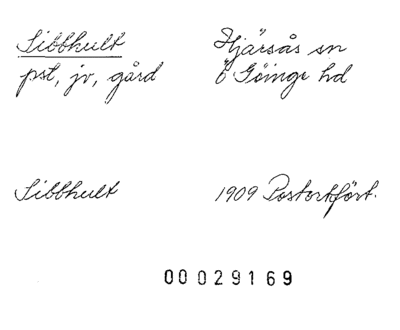 Sibbhult Hjärsås sn
pst, jv, gård Ö Göinge hd
Sibbhult 1909 Postortsfört.
00029169